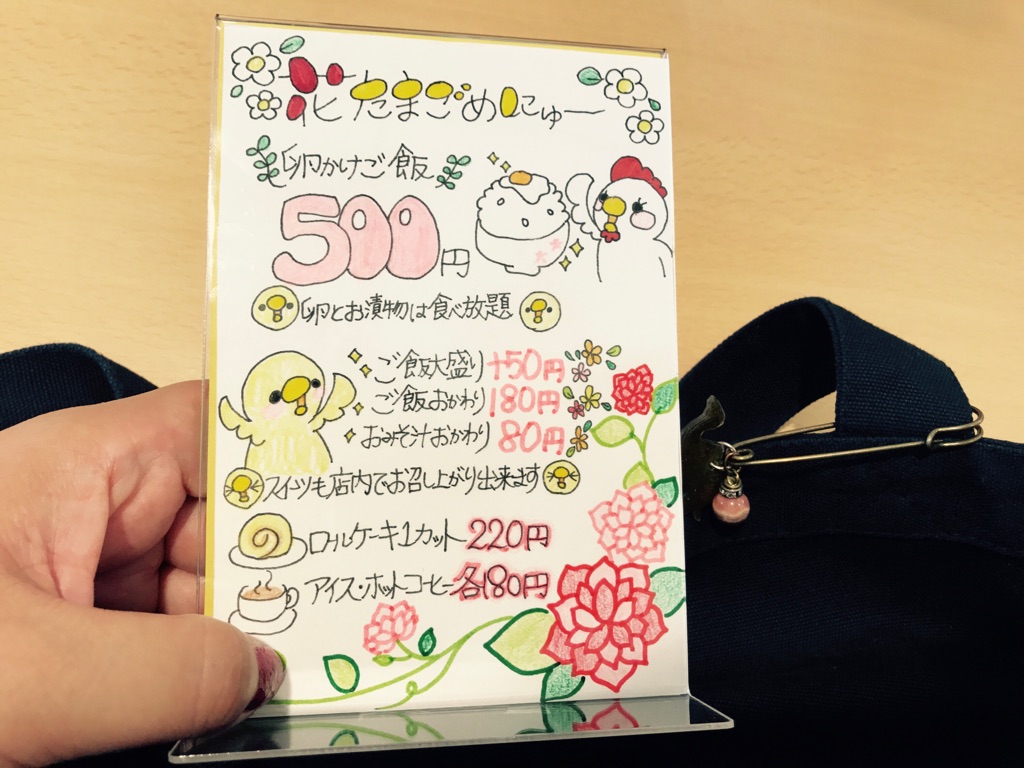 花たまごめにゅー
卵かけご飯
500円
卵とお漬物は食べ放題
ご飯大盛り+50円
ご飯おかわり180円
おみそ汁おかわり80円
スイーツも店内でお召し上がり出来ます
ロールケーキ1カット 220円
アイス・ホットコーヒー各180円